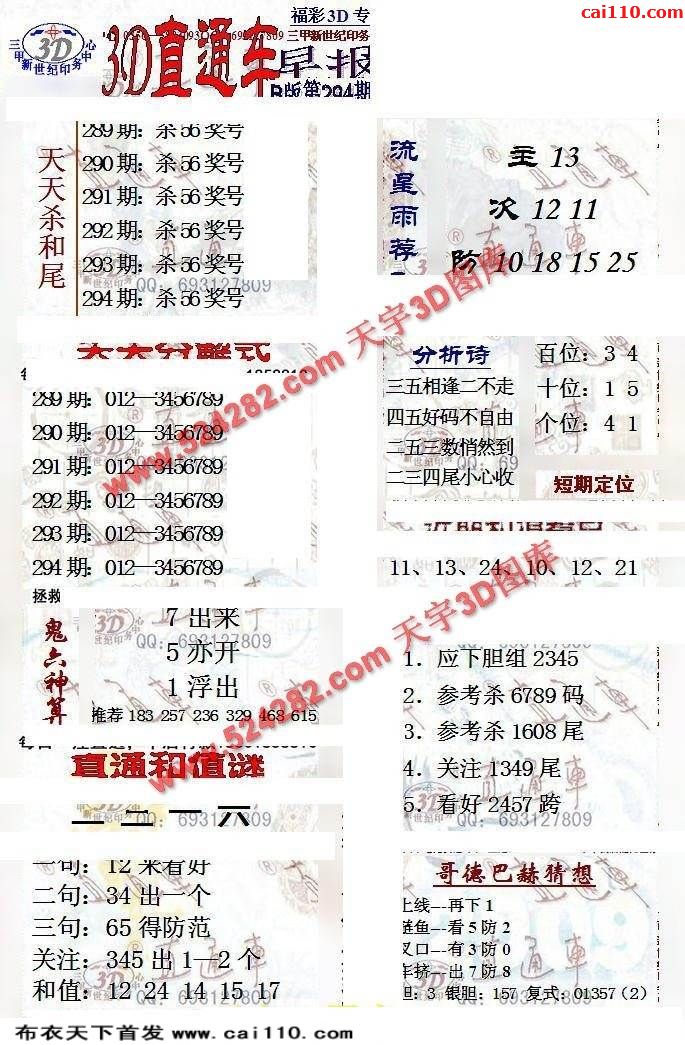 cai110.com
福彩3D专
三甲新世纪印务
三甲新世纪印务中心
3D
3D直通车
早报
B版第294期
天天杀和尾
289期：杀56奖号
290期：杀56奖号
291期：杀56奖号
292期：杀56奖号
293期：杀56奖号
294期：杀56奖号
QQ：693127809
流星雨荐
主 13
次 12 11
防 10 18 15 25
天天分解式
289期：012—3456789
290期：012—3456789
291期：012—3456789
292期：012—3456789
293期：012—3456789
294期：012—3456789
分析诗
三五相逢二不走
四五好码不自由
二五三数悄然到
二三四尾小心收
百位：3 4
十位：1 5
个位：4 1
短期定位
11、13、24、10、12、21
拯救
鬼六神算
7出来
5亦开
1浮出
推荐 183 257 236 329 468 615
QQ：693127809
1．应下胆组2345
2．参考杀6789码
3．参考杀1608尾
4．关注1349尾
5．看好2457跨
QQ：693127809
直通和值谜
二二一六
QQ：693127809
一句：12来看好
二句：34出一个
三句：65得防范
关注：345出1—2个
和值：12 24 14 15 17
哥德巴赫猜想
上线---再下1
鲢鱼---看5防2
叉口---有3防0
车挤---出7防8
胆：3 银胆：157 复式：01357（2）
www.524282.com 天宇3D图库
www.524282.com 天宇3D图库
布衣天下首发 www.cai110.com